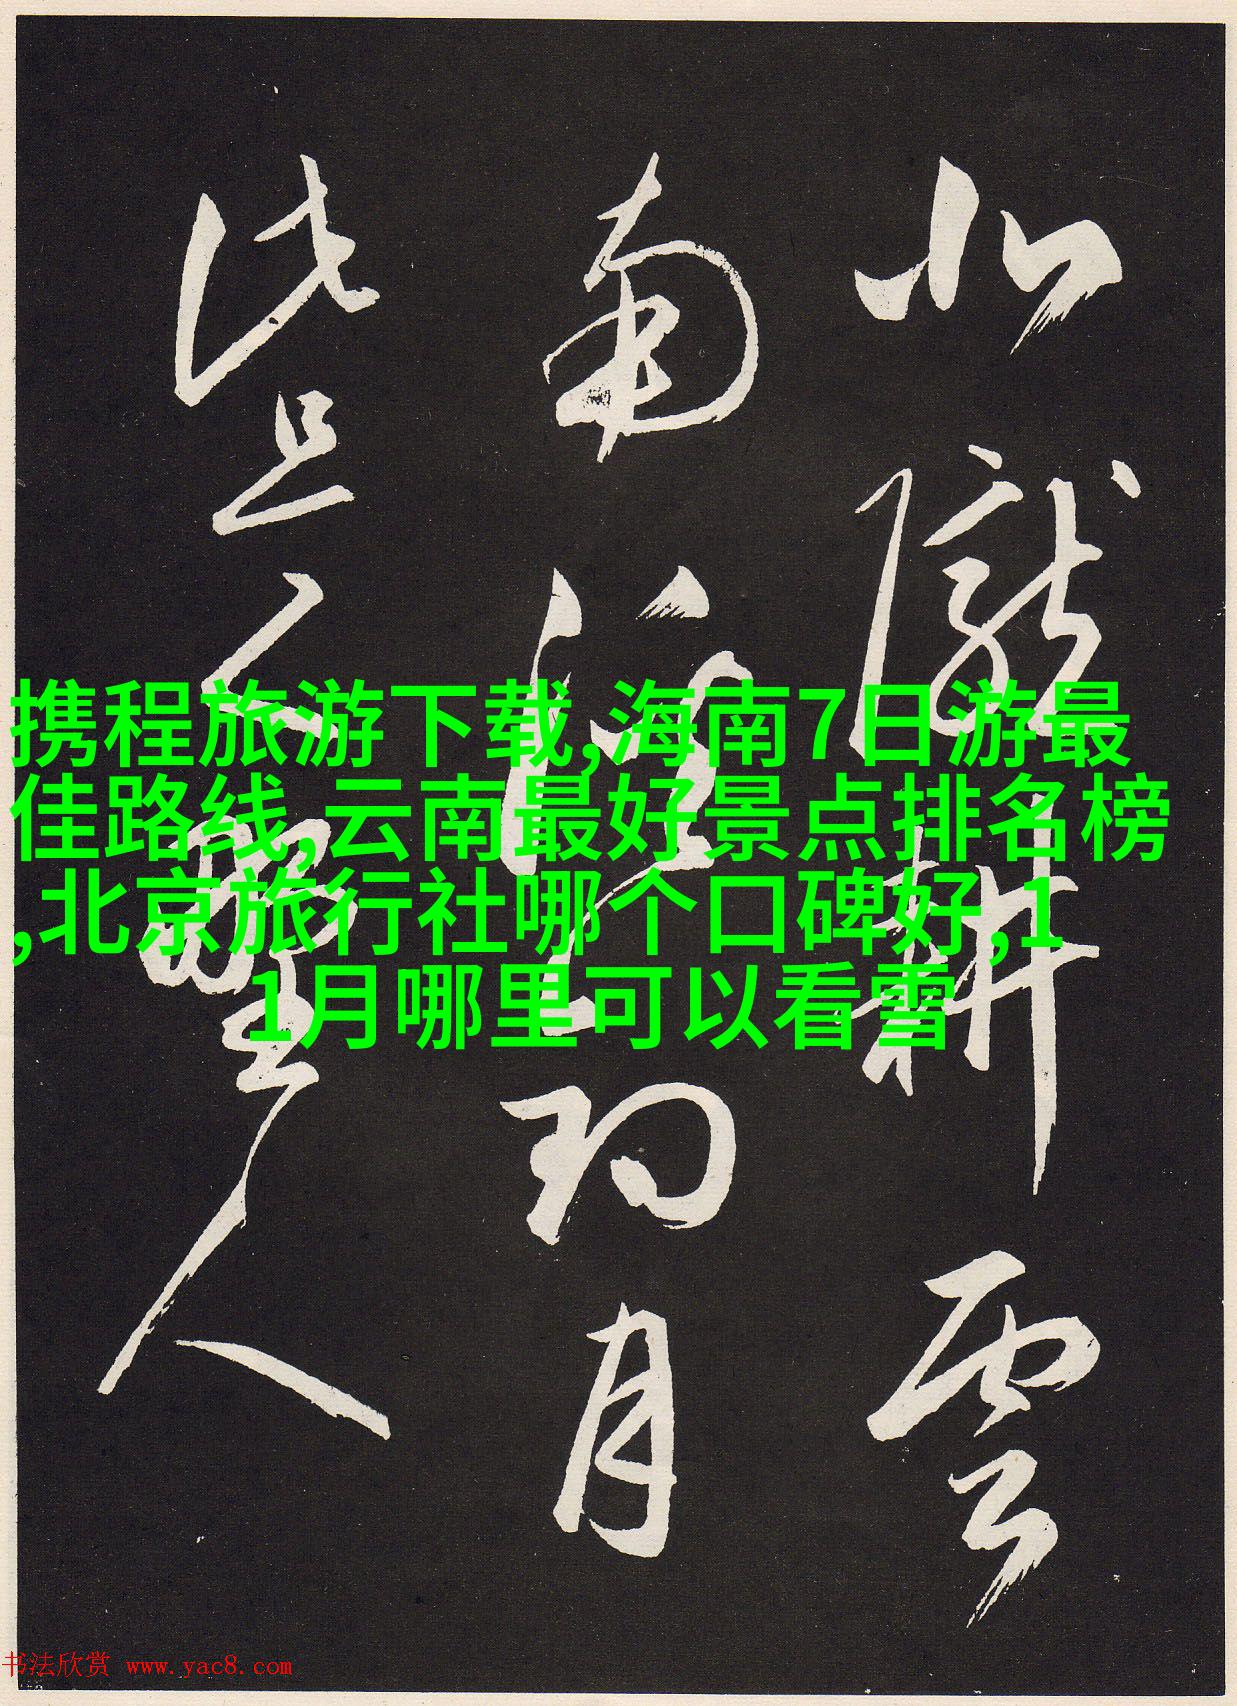 携程旅游下载,海南7日游最
佳路线,云南最好景点排名榜
,北京旅行社哪个口碑好,1
1月哪里可以看雪
北隴耕雲
南溪釣月
野人
书法欣赏 www.yac8.com